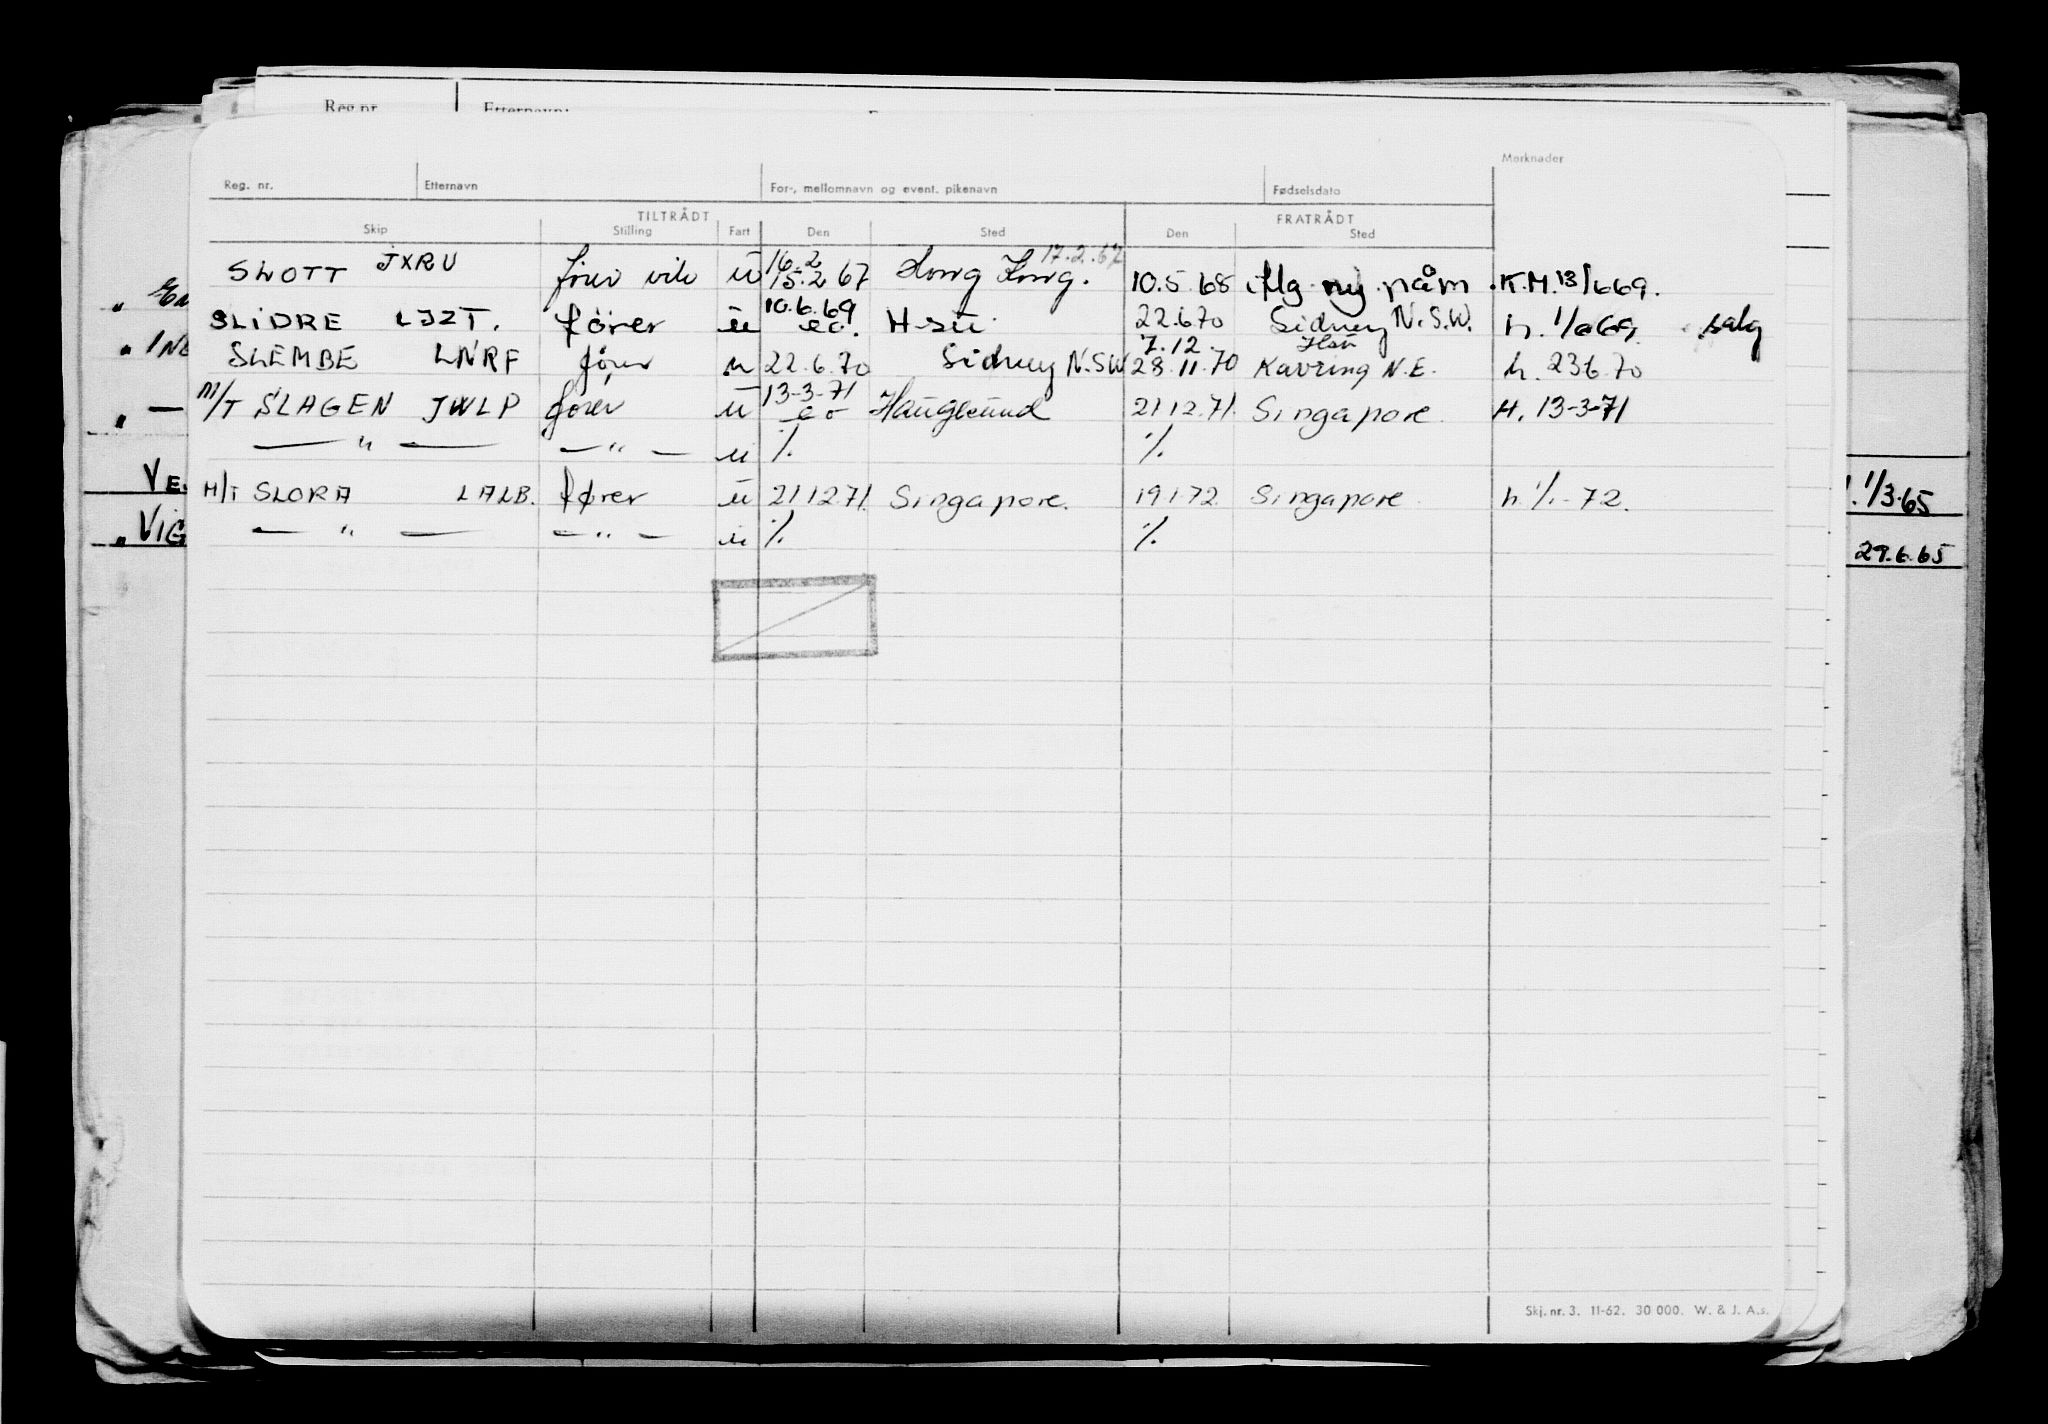 Reg.nr. Etternavn:
Merknader
Reg. nr. Etternavn For-, mellomnavn og event. pikenavn Fødselsdato
TILTRÅDT FRATRÅDT
Skip Stilling Fart Den Sted Den Sted
16.2 17.2.67
SLOTT JXRU fører vik u 15.2 67 Hong Kong. 10.5.68 ny K.M. 13/669.
10.6.69
SLIDRE LJZT. fører u H-su 22.6.70 Sidney N.S.W. h. 1/669 salg
7.12. Hsu
SLEMBE LNRF fører u 22.6.70 Sidney N.SW 28.11.70 N.E. h. 236.70
13-3-71
M/T SLAGEN JWLP fører u Haugesund 21.12.71. Singapore. H. 13-3-71
— " — — " — u % %
M/T SLORA LALB. fører u 21.12.71. Singapore. 19.1.72 Singapore h. 1/1-72.
— " — — " — u % %
" INE
" —
VE
" VIG
1/3.65
29.6.65
Skj. nr. 3. 11-62. 30 000. W. & J. A.s.